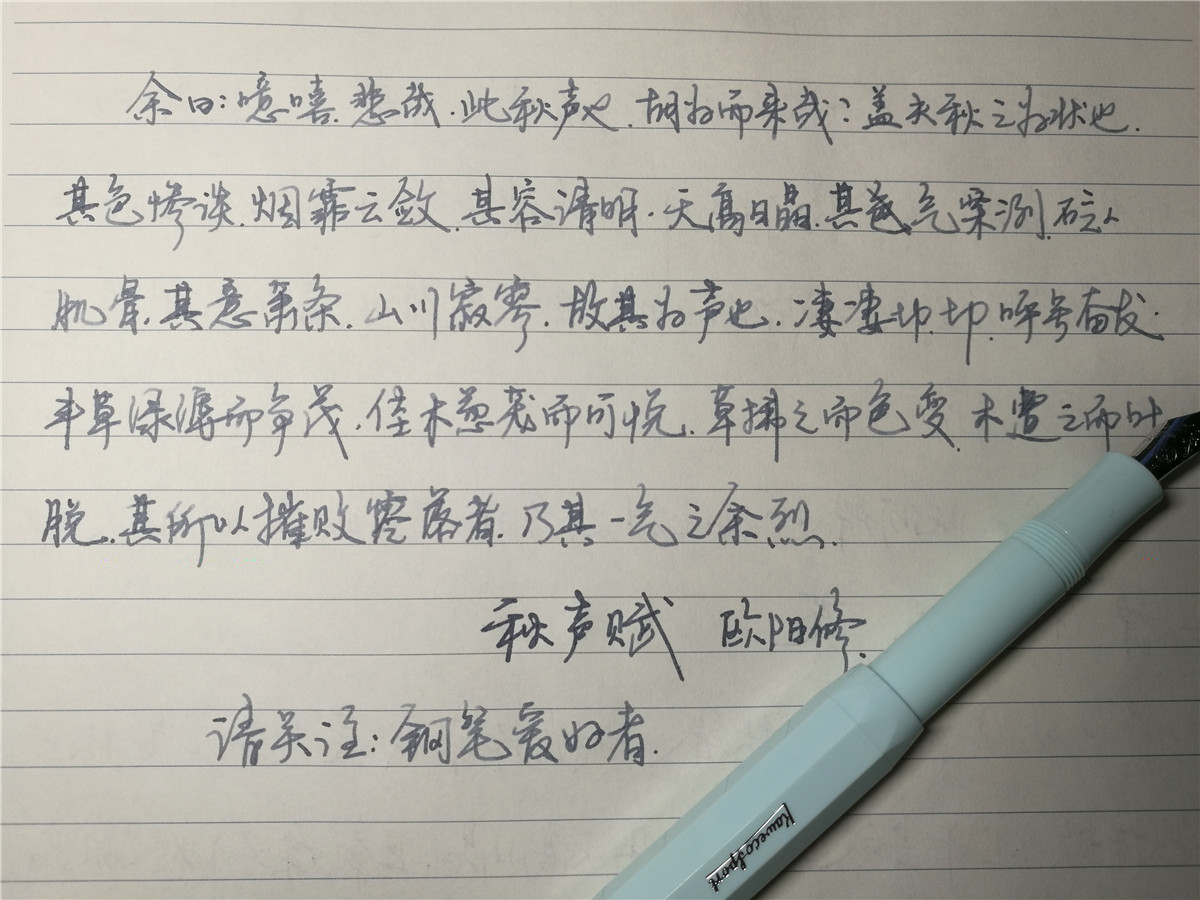 余曰:噫嘻,悲哉.此秋声也,胡为而来哉?盖夫秋之为状也.
其色惨淡,烟霏云敛,其容清明.天高日晶.其气栗冽,砭人
肌骨,其意萧条,山川寂寥,故其为声也,凄凄切切,呼号奋发.
丰草绿缛而争茂,佳木葱茏而可悦,草拂之而色变,木遭之而叶
脱,其所以摧败零落者,乃其一气之余烈.
秋声赋 欧阳修.
请关注:钢笔爱好者.
Kaweco Sport